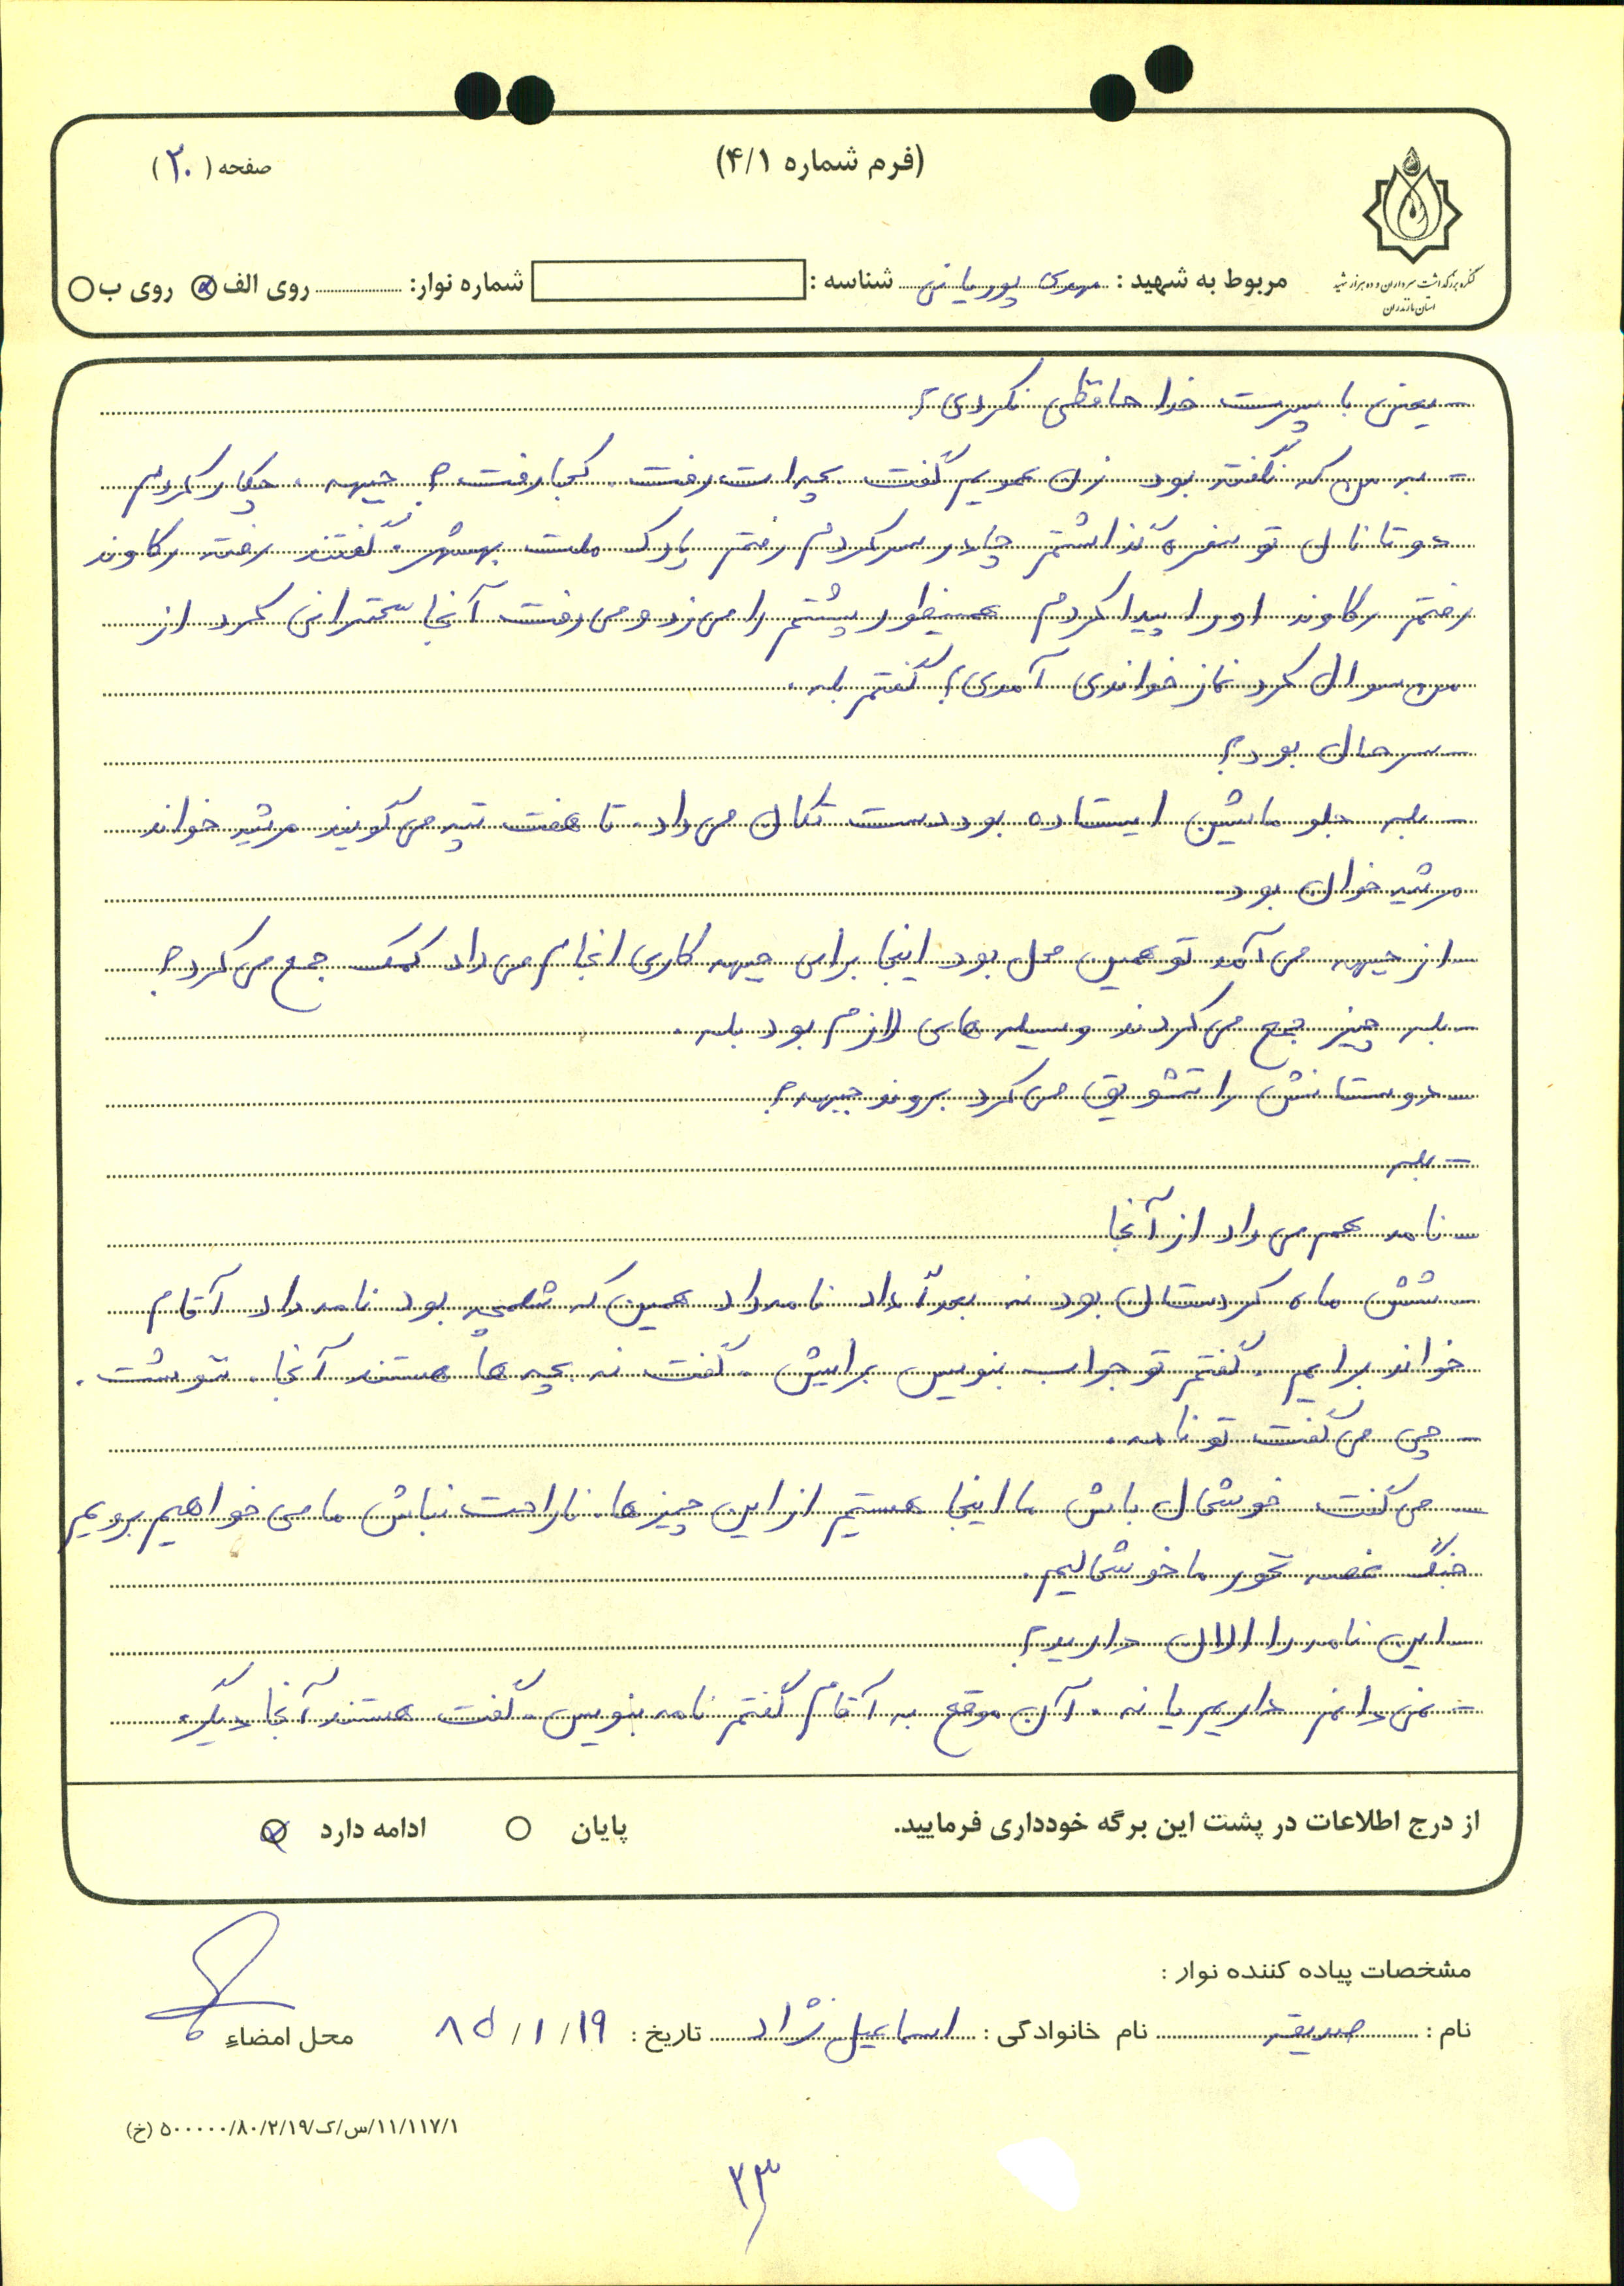 (فرم شماره ۴/۱)
صفحه (۲۰)
کنگره بزرگداشت سرداران و ده هزار شهید
استان مازندران
مربوط به شهید : مهدی پوریانی شناسه : شماره نوار: روی الف روی ب
- یعنی با پسرت خدا حافظی نکردی؟
- به من که نگفته بود زن عمویم گفت بچه ات رفت. کجا رفت؟ جبهه. چکار کردم
دو تا نان تو سفره گذاشتم چادر سر کردم رفتم پارک ملت بهشهر. گفتند رفته رکاوند
رفتم رکاوند او را پیدا کردم همینطور پشتم را می زد و می رفت آنجا سخنرانی کرد از
من سوال کرد نماز خواندی آمدی؟ گفتم بله.
- سرحال بود؟
- بله جلو ماشین ایستاده بود دست تکان می داد. تا هفت تپه می گویند مرثیه خواند
مرثیه خوان بود
از جبهه می آمد تو همین محل بود اینجا برای جبهه کاری انجام می داد کمک جمع می کرد؟
- بله چیز جمع می کردند وسیله های لازم بود بله.
- دوستانش را تشویق می کرد بروند جبهه؟
- بله
- نامه هم می داد از آنجا
- شش ماه کردستان بود نه بعداً داد نامه داد همین که شلمچه بود نامه داد آقام
خواند برایم. گفتم تو جواب بنویس برایش. گفت نه بچه ها هستند آنجا. ننوشت.
- چی می گفت تو نامه.
- می گفت خوشحال باش ما اینجا هستیم از این چیزها. ناراحت نباش ما می خواهیم برویم
جنگ غصه نخور ما خوشحالیم.
- این نامه را الان دارید؟
- نمی دانم داریم یا نه. آن موقع به آقام گفتم نامه بنویس. گفت هستند آنجا دیگر.
از درج اطلاعات در پشت این برگه خودداری فرمایید. پایان ادامه دارد
مشخصات پیاده کننده نوار :
نام : صدیقه نام خانوادگی : اسماعیل نژاد تاریخ : ۸۵/۱/۱۹ محل امضاءِ
۱۱/۱۱۷/۱/س/ک/۵۰۰۰۰۰/۸۰/۲/۱۹ (خ)
۲۳